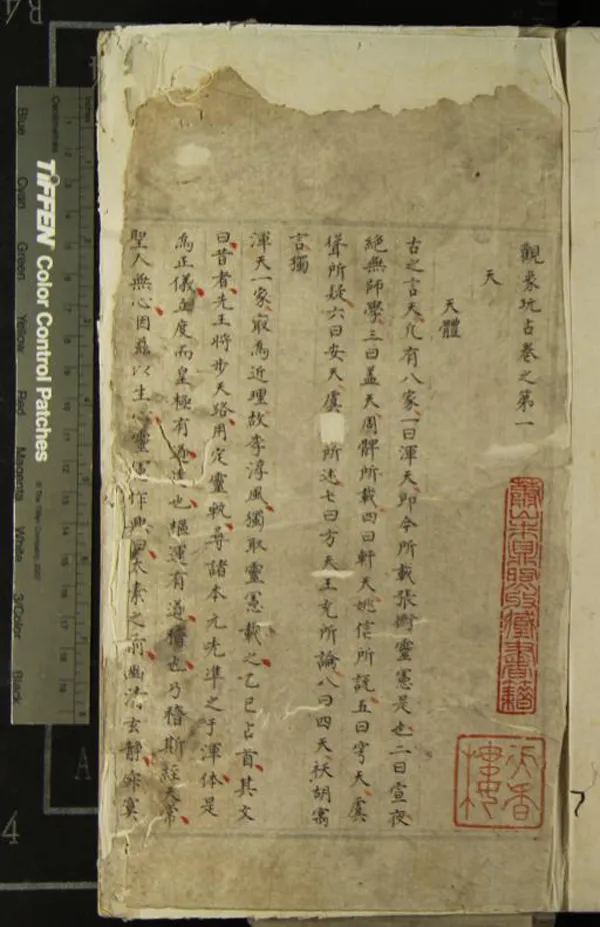 觀象玩占卷之第一
天
天體
古之言天凡有八家一曰渾天即今所載張衡靈憲是也二曰宣夜
絕無師學三曰蓋天周髀所載四曰軒天姚信所說五曰穹天虞
聳所疑六曰安天虞 所述七曰方天王充所論八曰四天祆胡寓
言獨
渾天一家㝡為近理故李淳風獨取靈憲載之乙巳占首其文
曰昔者先王將步天路用定靈軌尋諸本元先準之于渾体是
為正儀立度而皇極有逌建也樞運有逌稽也乃稽斯經天常
聖人無心因茲以生心靈憲作興曰太素之前幽清玄靜寂寞
蕭山朱鼎煦收藏書籍
別宥齋
TIFFEN Color Control Patches
Blue
Cyan
Green
Yellow
Red
Magenta
White
3/Color
Black
Centimetres
Inches
© The Tiffen Company, 2007
R4
A
4
7